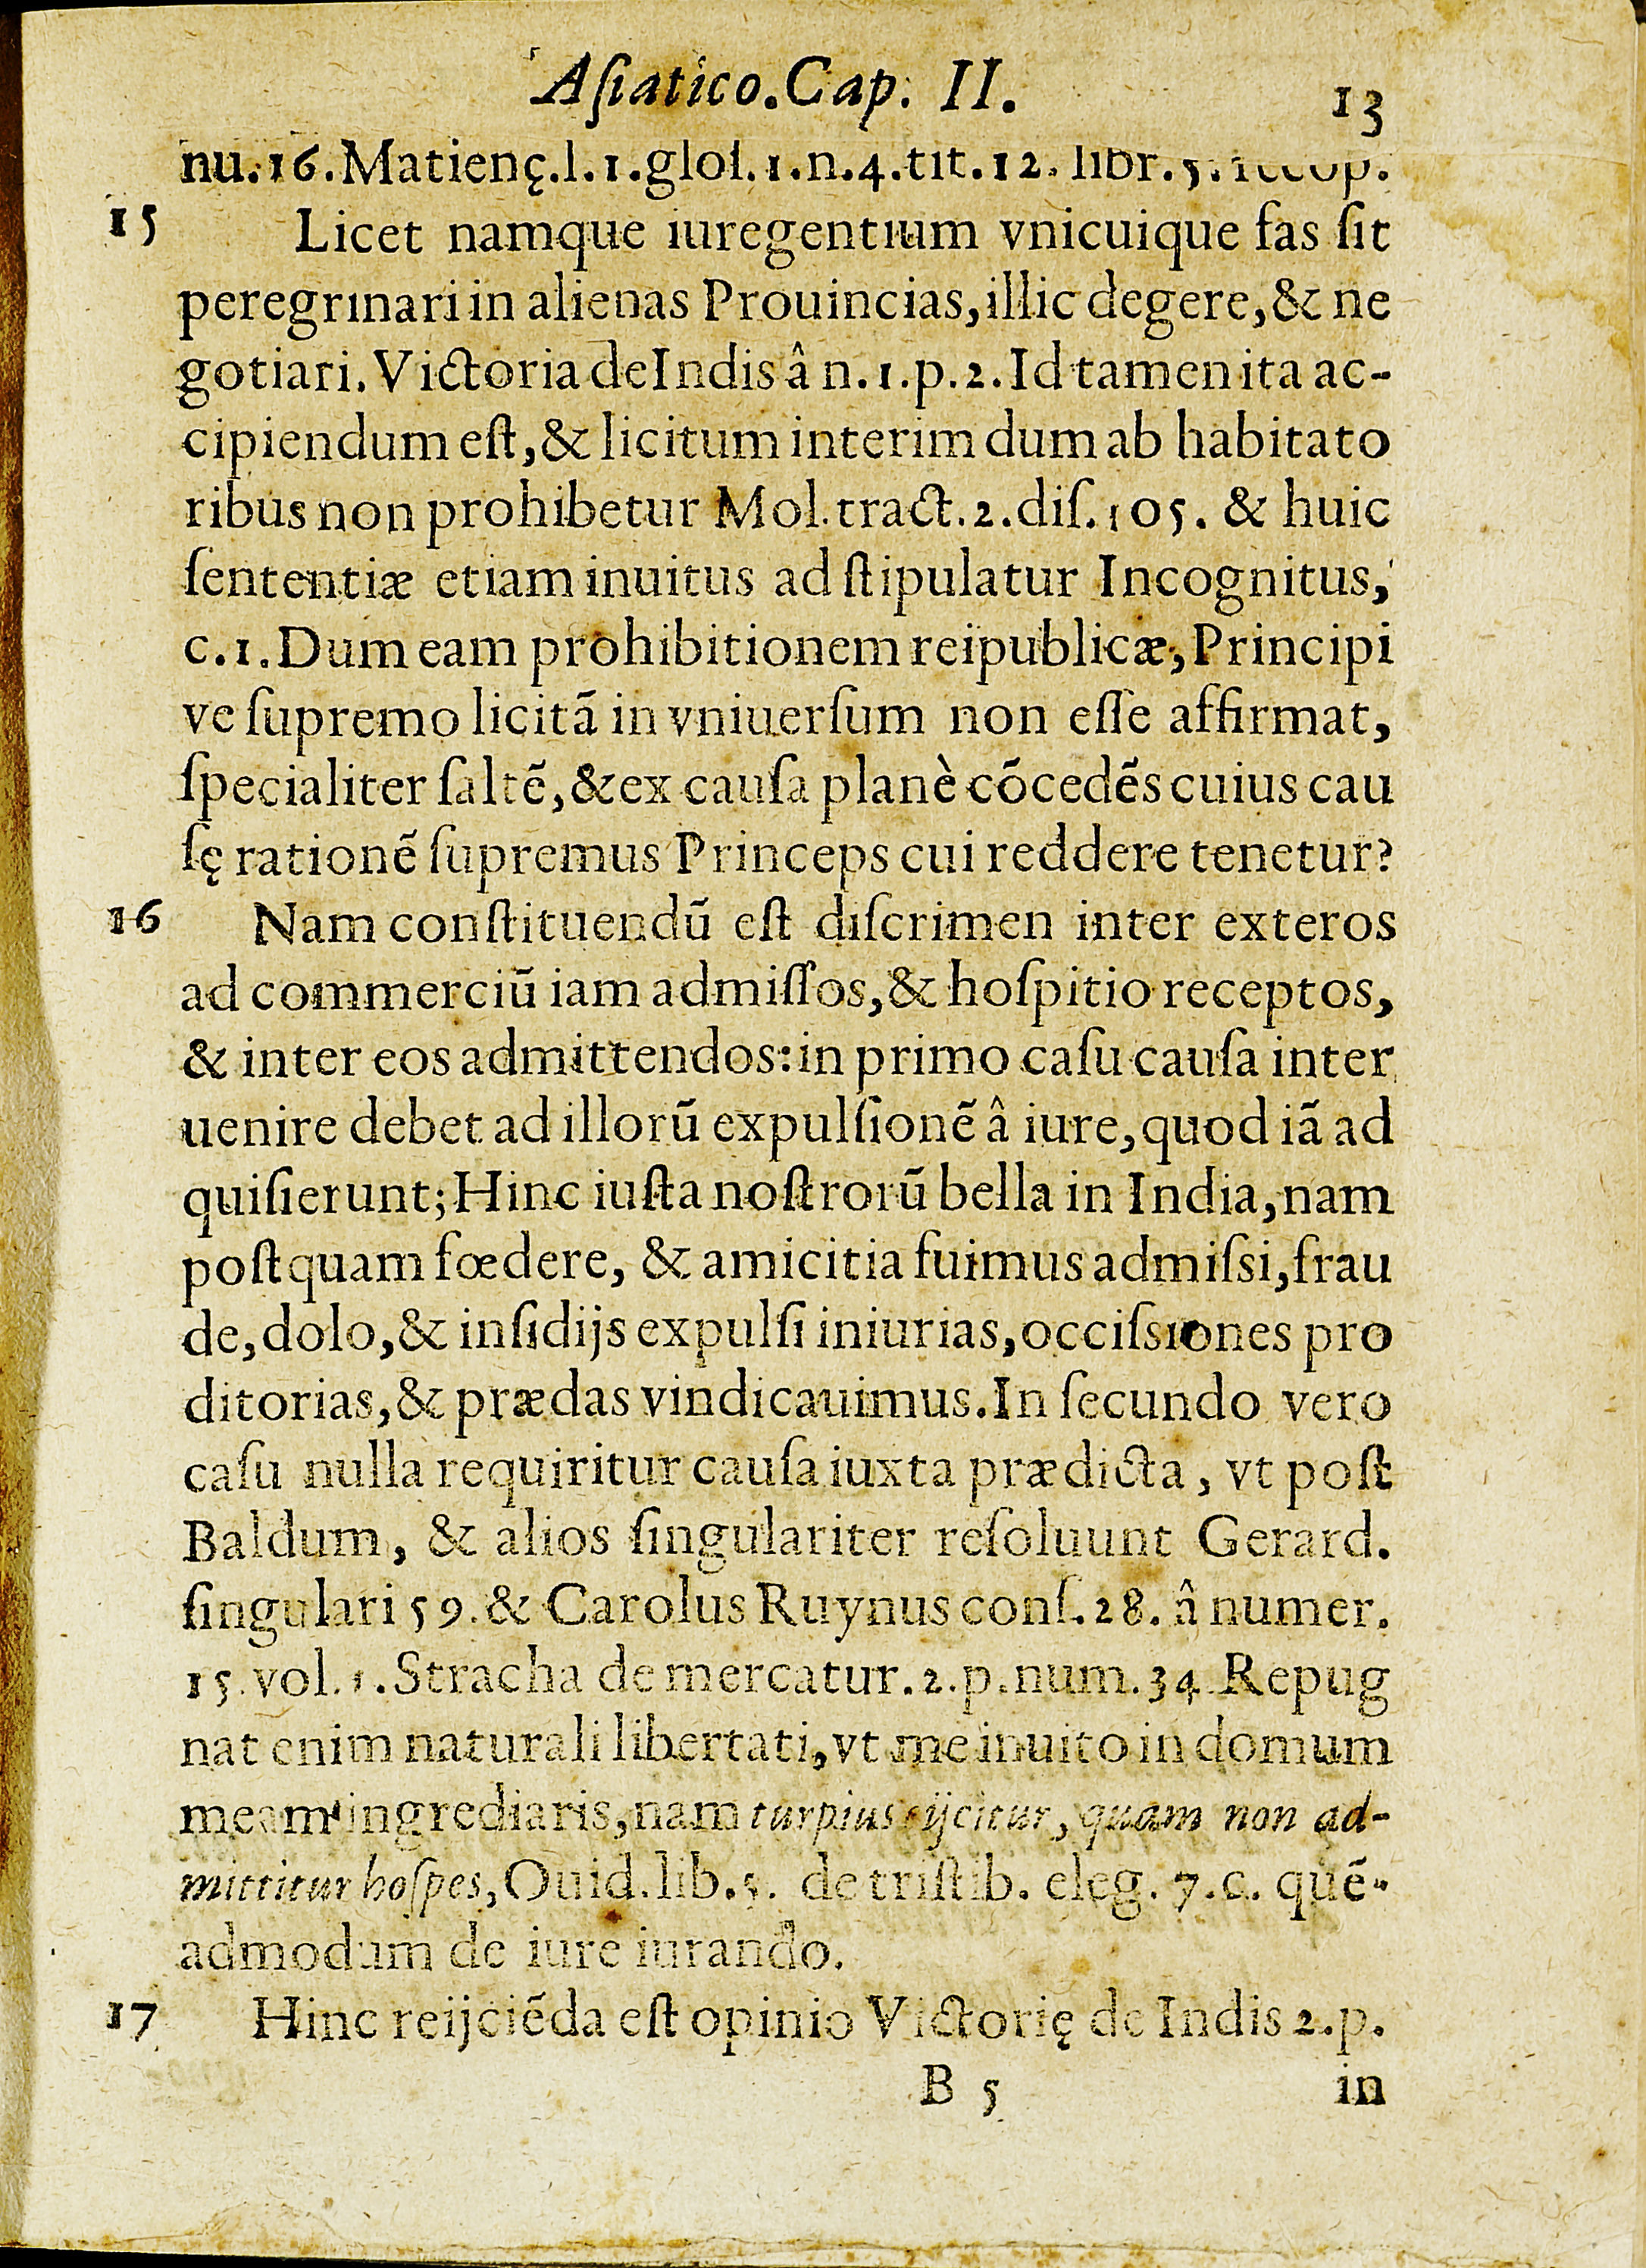 Aſiatico.Cap. II. 13
nu.16.Matienç.l.1.gloſ.1.n.4.tit.12. libr.5.
15 Licet namque iuregentium vnicuique fas ſit
peregrinari in alienas Prouincias, illic degere, & ne
gotiari. Victoria deIndis â n.1.p.2. Id tamen ita ac-
cipiendum eſt, & licitum interim dum ab habitato
ribus non prohibetur Mol. tract.2.diſ.105. & huic
ſententiæ etiam inuitus ad ſtipulatur Incognitus,
c.1. Dum eam prohibitionem reipublicæ, Principi
ve ſupremo licitã in vniuerſum non eſſe affirmat,
ſpecialiter ſaltẽ, & ex cauſa planè cõcedẽs cuius cau
ſę rationẽ ſupremus Princeps cui reddere tenetur?
16 Nam conſtituendũ eſt diſcrimen inter exteros
ad commerciũ iam admiſſos, & hoſpitio receptos,
& inter eos admittendos: in primo caſu cauſa inter
uenire debet ad illorũ expulſionẽ â iure, quod iã ad
quiſierunt; Hinc iuſta noſtrorũ bella in India, nam
poſtquam fœdere, & amicitia fuimus admiſsi, frau
de, dolo, & inſidijs expulſi iniurias, occiſsiones pro
ditorias, & prædas vindicauimus. In ſecundo vero
caſu nulla requiritur cauſa iuxta prædicta, vt poſt
Baldum, & alios ſingulariter reſoluunt Gerard.
ſingulari 59. & Carolus Ruynus conſ.28. â numer.
15. vol.1. Stracha de mercatur.2.p.num.34 Repug
nat enim naturali libertati, vt me inuito in domum
meam ingrediaris, nam turpius eijcitur, quam non ad-
mittitur hoſpes, Ouid.lib.5. de triſtib. eleg.7.c. quẽ-
admodum de iure iurando.
17 Hinc reijciẽda eſt opinio Victorię de Indis 2.p.
B 5 in